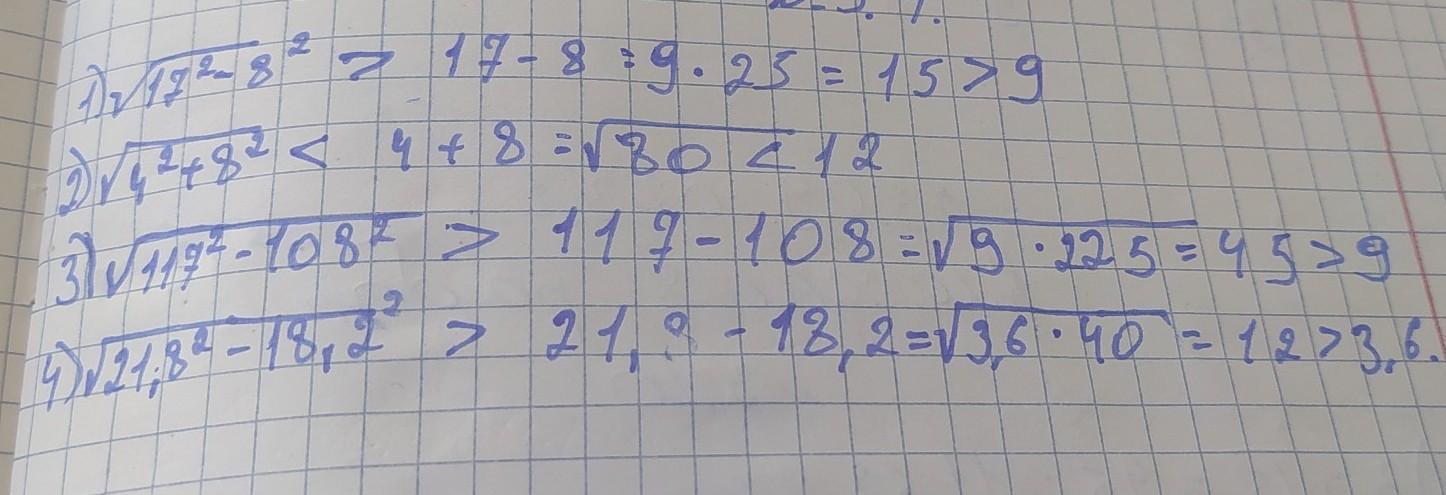 1) √17² - 8² > 17 - 8 = 9 · 25 = 15 > 9
2) √4² + 8² < 4 + 8 = √80 < 12
3) √117² - 108² > 117 - 108 = √9 · 225 = 45 > 9
4) √21,8² - 18,2² > 21,8 - 18,2 = √3,6 · 40 = 12 > 3,6.